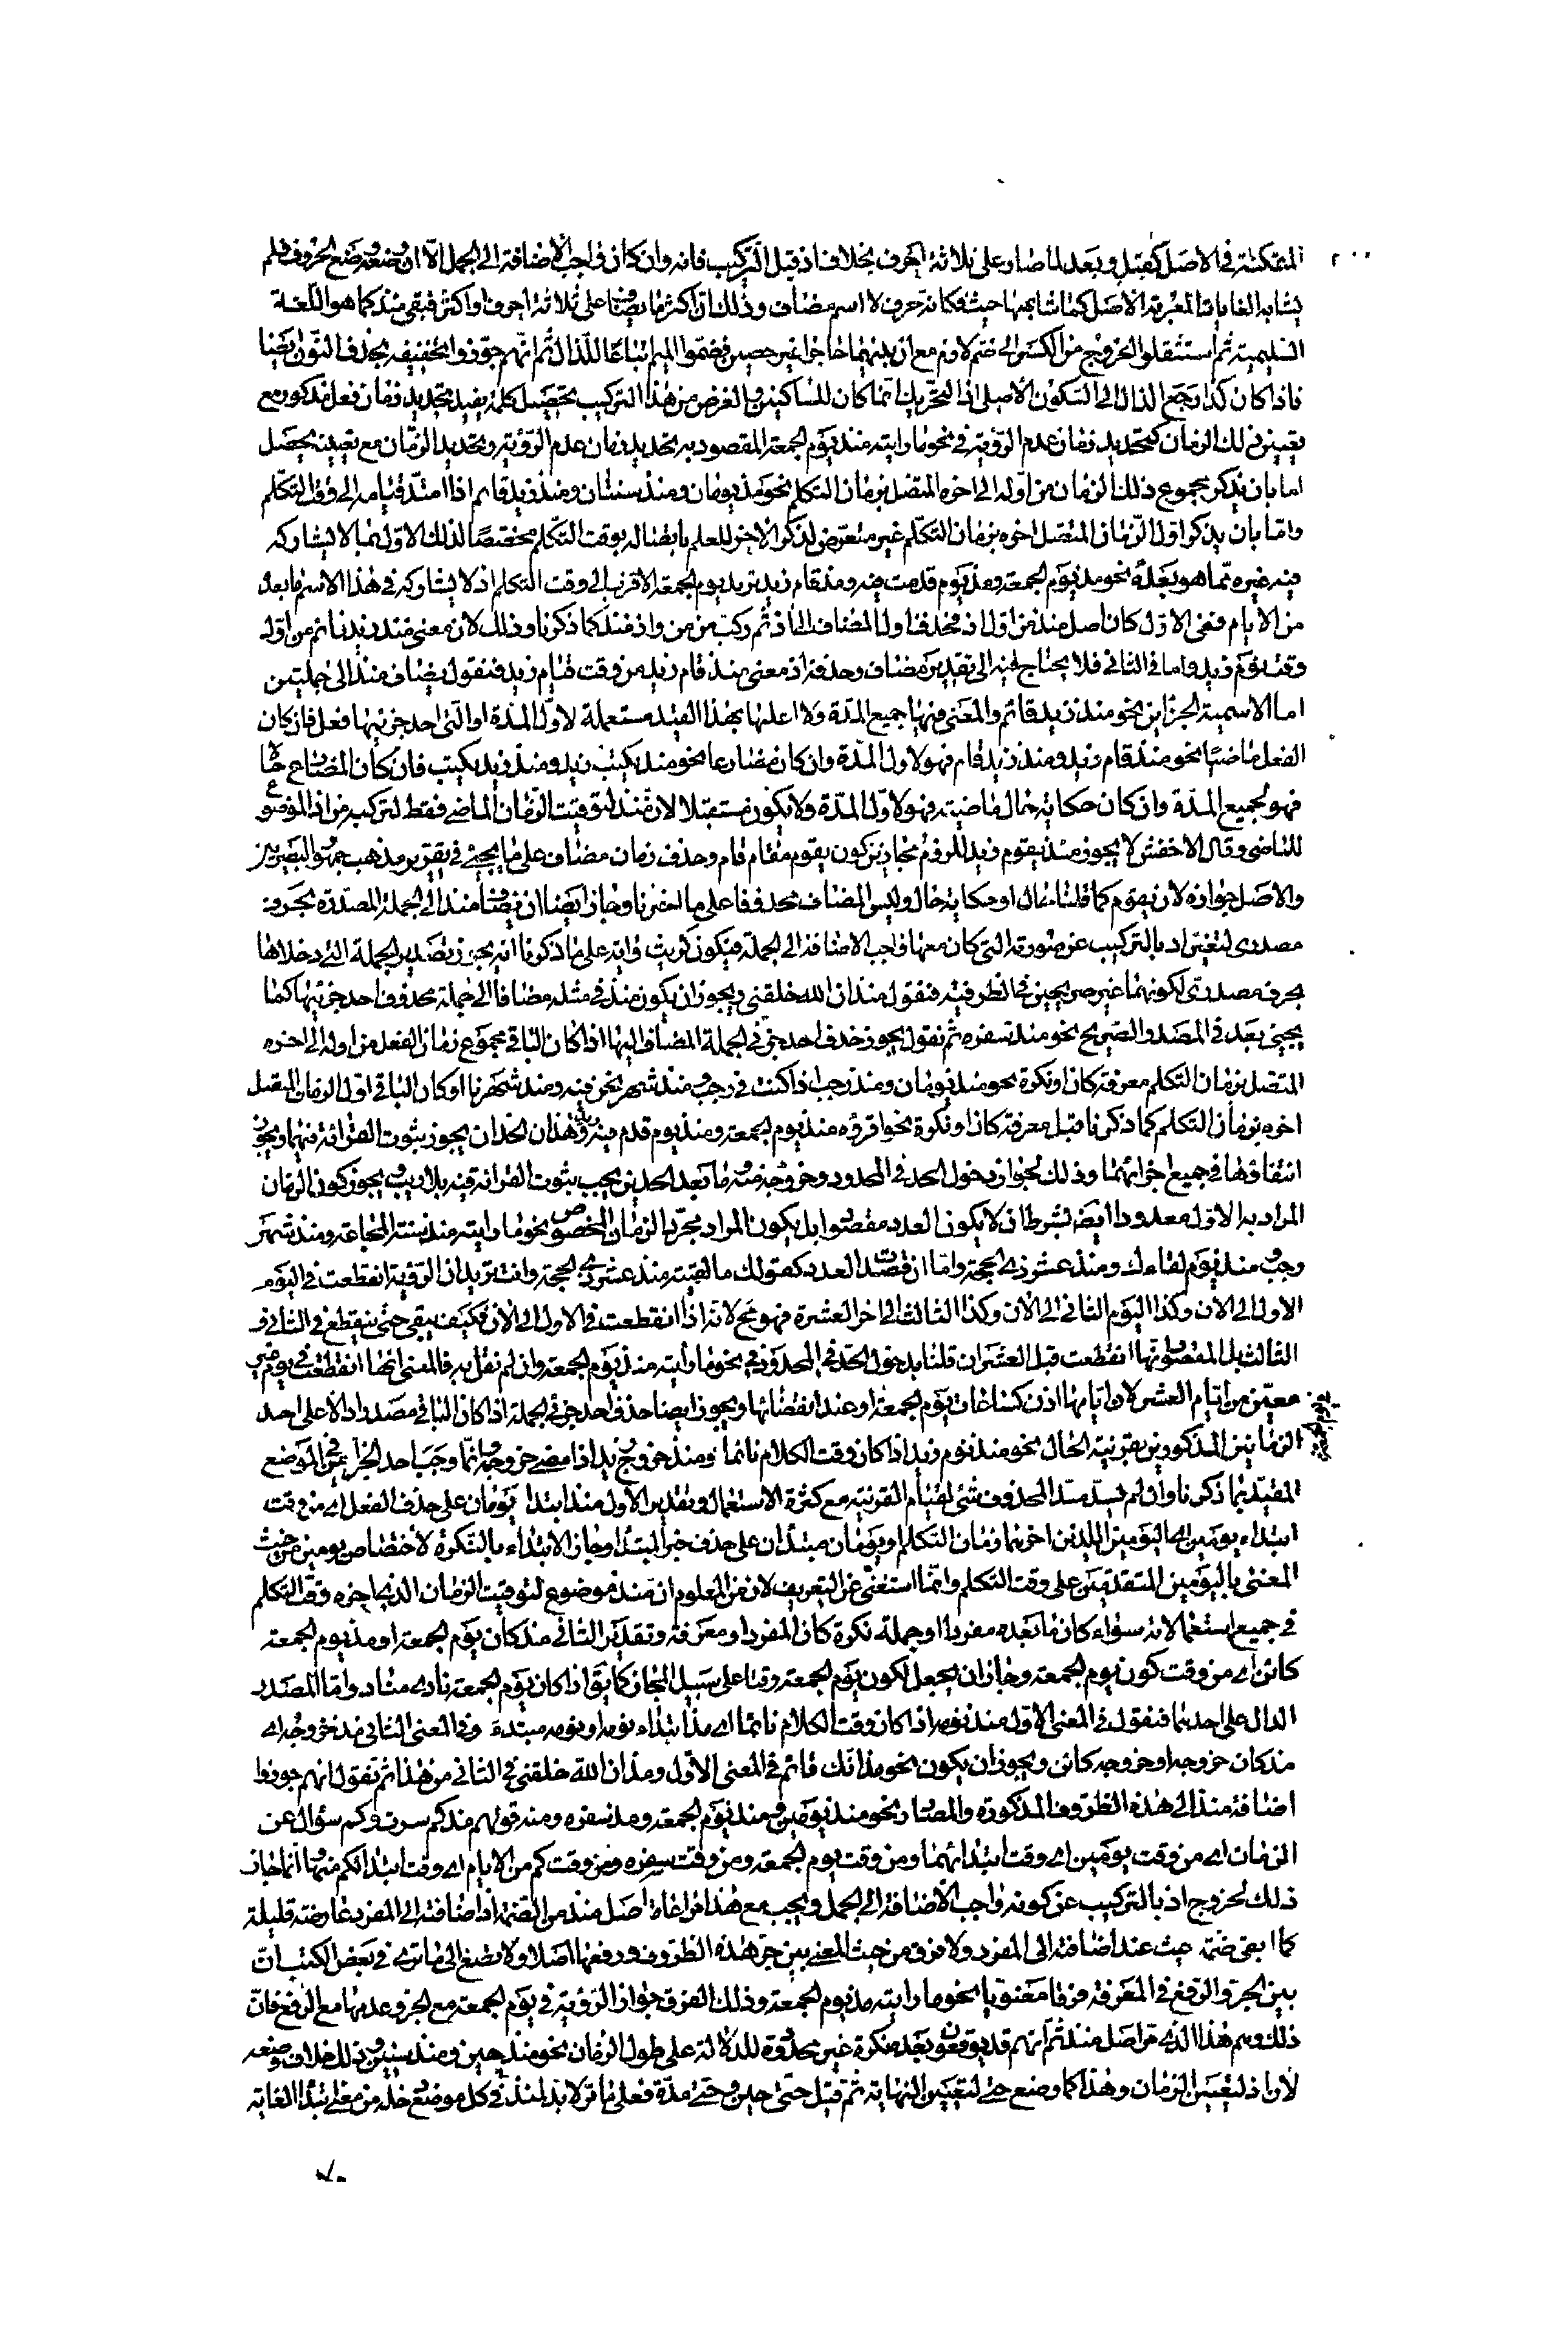 المتمكنة في الاصل كقبل وبعد لما صار على ثلاثة احرف بخلاف اذ قبل التركيب فانه وان كان واجب الاضافة الى الجمل الا ان وضعه وضع الحروف فلم
يشابه الغايات المعربة الاصل كما شابهتها حيث فكانه حرف لا اسم مضاف وذلك ان اكثر ما يضاف على ثلاثة احرف او اكثر فبقى منذ كما هو اللغة
السليمية ثم استثقلوا الخروج من الكسر الى ضم لازم مع ان بينهما حاجزا غير حصين فضموا الميم اتباعا للذال ثم انهم جوزوا تخفيفه بحذف النون ايضا
فاذا كان كذا رجع الذال الى السكون الاصلى اذ التحريك انما كان للساكنين والغرض من هذا التركيب تحصيل كلمة يفيد تحديد زمان فعل مذكور مع
تعيين ذلك الزمان كتحديد زمان عدم الرؤية في نحو ما رايته منذ يوم الجمعة المقصود به تحديد زمان عدم الرؤية وتحديد الزمان مع تعيينه يحصل
اما بان يذكر مجموع ذلك الزمان من اوله الى اخره المتصل بزمان التكلم نحو مذ يومان ومنذ سنتان ومنذ زيد قائم اذا امتد قيامه الى وقت التكلم
واما بان يذكر اول الزمان المتصل اخره بزمان التكلم غير متعرض لذكر الاخر للعلم باتصاله بوقت التكلم مختصا لذلك الاول بما لا يشاركه
فيه غيره مما هو بعده نحو مذ يوم الجمعة ومذ يوم قدمت فيه ومذ قام زيد تريد يوم الجمعة الاقرب الى وقت التكلم اذ لا يشاركه في هذا الاسم ما بعده
من الايام ففى الاول كان اصل منذ من اول اذ فحذف اول المضاف الى اذ ثم ركب من من واذ منذ كما ذكرنا وذلك لان معنى منذ زيد نائم من اول
وقت نوم زيد واما في الثاني فلا يحتاج فيه الى تقدير مضاف وحذفه اذ معنى منذ قام زيد من وقت قيام زيد فنقول يضاف منذ الى جملتين
اما الاسمية الجزاين نحو منذ زيد قائم والمعنى فيها جميع المدة ولا اعلمها بهذا القيد مستعملة لاول المدة او التي احد جزئيها فعل فان كان
الفعل ماضيا نحو منذ قام زيد ومنذ زيد قام فهو لاول المدة وان كان مضارعا نحو منذ يكتب زيد ومنذ زيد يكتب فان كان المضارع حالا
فهو لجميع المدة وان كان حكاية حال ماضية فهو لاول المدة ولا يكون مستقبلا لان منذ لتوقيت الزمان الماضي فقط لتركبه من اذ الموضوع
للماضي وقال الاخفش لا يجوز منذ يقوم زيد للزوم مجازين كون يقوم مقام قام وحذف زمان مضاف على ما يجيء في تقرير مذهب جمهور البصريين
والاصل جوازه لان يقوم كما قلنا حال او حكاية حال وليس المضاف محذوفا على ما اخترنا وجاز ايضا ان يضاف منذ الى الجملة المصدرة بحرف
مصدرى لتغير اذ بالتركيب عن صورته التي كان معها واجب الاضافة الى الجملة فيكون كريث وآية على ما ذكرنا انه يجوز تصدير الجملة التي دخلاها
بحرف مصدرى لكونهما غير صريحين في الظرفية فنقول منذ ان الله خلقني ويجوز ان يكون منذ في مثله مضافا الى جملة محذوف احد جزئيها كما
يجيء بعد في المصدر الصريح نحو منذ سفره ثم نقول يجوز حذف احد جزئي الجملة المضاف اليها اذا كان الباقي مجموع زمان الفعل من اوله الى اخره
المتصل بزمان التكلم معرفة كان او نكرة نحو منذ يومان ومنذ رجب اذا كنت في رجب ومنذ شهر نحن فيه ومنذ شهرنا او كان الباقي اول الزمان المتصل
اخره بزمان التكلم كما ذكرنا قبل معرفة كان او نكرة نحو اقرؤه منذ يوم الجمعة ومنذ يوم قدم فيه زيد وهذان الحدان يجوز ثبوت القرائة فيهما ويجوز
انتفاؤها في جميع اجزائهما وذلك لجواز دخول الحد في المحدود وخروجه منه وما بعد الحدين يجب ثبوت القرائة فيه بلا ريب ويجوز كون الزمان
المراد به الاول معدودا ايضا بشرط ان لا يكون العدد مقصودا بل يكون المراد مجرد الزمان المخصوص نحو ما رايته منذ سنة المجاعة ومنذ شهر
رجب ومنذ يوم لقاءك ومنذ عشر ذي الحجة واما ان قصدت العدد كقولك ما لقيته منذ عشر ذي الحجة وانت تريد ان الرؤية انقطعت في اليوم
الاول الى الان وكذا اليوم الثاني الى الان وكذا الثالث الى اخر العشرة فهو مح لانه اذا انقطعت في الاول الى الان فكيف يبقى حتى ينقطع في الثاني و
الثالث بل المقصود انها انقطعت قبل العشر ان قلنا بدخول الحد في المحدود في نحو ما رأيته منذ يوم الجمعة وان لم نقل به فالمعنى انها انقطعت في يوم غير
معين من ايام العشر لان ايامها اذن كساعات يوم الجمعة او عند انقضائها ويجوز ايضا حذف احد جزئي الجملة اذا كان الباقي مصدرا دالا على احد
الزمانين المذكورين بقرينة الحال نحو منذ نوم زيد اذا كان وقت الكلام نائما ومنذ خروج زيد اذا مضى خروجه وانما وجب حذف احد الجزئين في الموضع
المقيد بما ذكرنا وان لم يسد مسد المحذوف شيء لقيام القرينة مع كثرة الاستعمال وتقدير الاول منذ ابتدا يومان على حذف الفعل اي من وقت
ابتداء يومين اي اليومين اللذين اخرهما زمان التكلم او يومان مبتدان على حذف خبر المبتدا وجاز الابتداء بالنكرة لاختصاص يومين من حيث
المعنى باليومين المتقدمين على وقت التكلم وانما استغنى عن التعريف لان من المعلوم ان منذ موضوع لتوقيت الزمان الذي اخره وقت التكلم
في جميع استعمالاته سواء كان ما بعده مفردا او جملة نكرة كان المفرد او معرفة وتقدير الثاني منذ كان يوم الجمعة او مذ يوم الجمعة
كائن اي من وقت كون يوم الجمعة وجاز ان يجعل لكون يوم الجمعة وقتا على سبيل المجاز كما يق اذا كان يوم الجمعة نادى مناد واما المصدر
الدال على احدهما فنقول في المعنى الاول منذ نومه اذا كان وقت الكلام نائما اي مذ ابتداء نومه او نومه مبتدء وفي المعنى الثاني مذ خروجه اي
مذ كان خروجه او خروجه كائن ويجوز ان يكون نحو مذ انك قائم في المعنى الاول ومذ ان الله خلقني في الثاني من هذا ثم نقول انهم جوزوا
اضافة منذ الى هذه الظروف المذكورة والمصدر نحو منذ يومين ومنذ يوم الجمعة ومذ سفره ومنه قولهم مذ كم سرت وكم سؤال عن
الزمان اي من وقت يومين اي وقت ابتدائهما ومن وقت يوم الجمعة ومن وقت سفره ومن وقت كم من الايام اي وقت ابتداء كم منها وانما جاز
ذلك لخروج اذ بالتركيب عن كونه واجب الاضافة الى الجمل ويجب مع هذا مراعاة اصل منذ من الضم اذ اضافته الى المفرد عارضة قليلة
كما ابقى ضمة حيث عند اضافته الى المفرد ولا فرق من حيث المعنى بين جر هذه الظروف ورفعها اصلا ولا تصغ الى ما ترى في بعض الكتب ان
بين الجر والرفع في المعرفة فرقا معنويا نحو ما رايته مذ يوم الجمعة وذلك الفرق جواز الرؤية في يوم الجمعة مع الجر وعدمها مع الرفع فان
ذلك وهم هذا الذي مر اصل منذ ثم انهم قد يوقعون بعده نكرة غير محدودة للدلالة على طول الزمان نحو منذ حين ومنذ سنين وذلك خلاف وضعه
لان اذ لتعيين الزمان وهذا كما وضع حتى لتعيين النهاية ثم قيل حتى حين وحتى مدة فعلى ما مر لا بد لمنذ في كل موضع دخله من معنى ابتداء الغاية